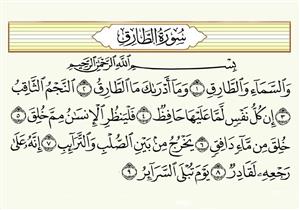 سُورَةُ الطَّارِقِ
بِسْمِ اللَّهِ الرَّحْمَٰنِ الرَّحِيمِ
وَالسَّمَاءِ وَالطَّارِقِ ١ وَمَا أَدْرَىٰكَ مَا الطَّارِقُ ٢ النَّجْمُ الثَّاقِبُ
٣ إِن كُلُّ نَفْسٍ لَّمَّا عَلَيْهَا حَافِظٌ ٤ فَلْيَنظُرِ الْإِنسَٰنُ مِمَّ خُلِقَ ٥
خُلِقَ مِن مَّاءٍ دَافِقٍ ٦ يَخْرُجُ مِن بَيْنِ الصُّلْبِ وَالتَّرَائِبِ ٧ إِنَّهُ عَلَىٰ
رَجْعِهِ لَقَادِرٌ ٨ يَوْمَ تُبْلَى السَّرَائِرُ ٩